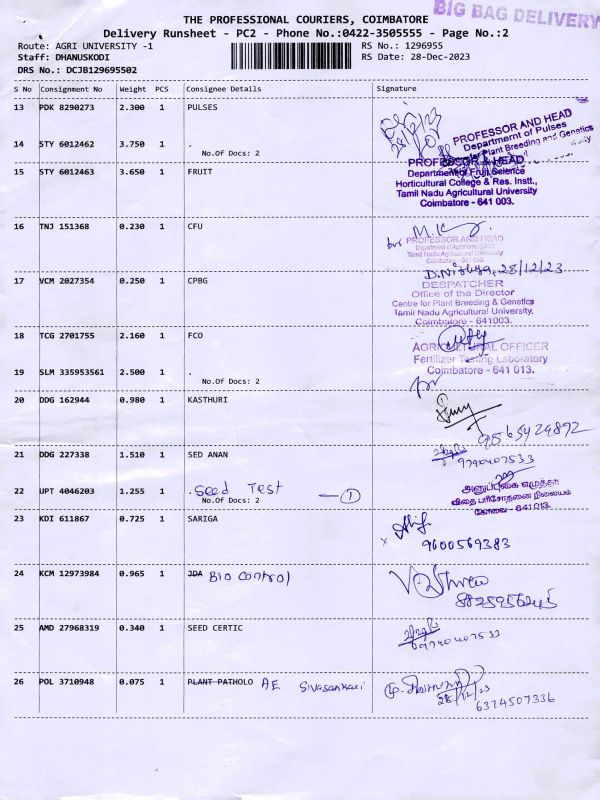 BIG BAG DELIVERY
THE PROFESSIONAL COURIERS, COIMBATORE
Delivery Runsheet - PC2 - Phone No.:0422-3505555 - Page No.:2
Route: AGRI UNIVERSITY -1 RS No.: 1296955
Staff: DHANUSKODI RS Date: 28-Dec-2023
DRS No.: DCJB129695502
S No Consignment No Weight PCS Consignee Details Signature
13 PDK 8290273 2.300 1 PULSES
28/12/23
PROFESSOR AND HEAD
Department of Pulses
Plant Breeding and Genetics
14 STY 6012462 3.750 1 .
No.Of Docs: 2
15 STY 6012463 3.650 1 FRUIT
PROFESSOR & HEAD
Department of Fruit Science
Horticultural College & Res. Instt.,
Tamil Nadu Agricultural University
Coimbatore - 641 003.
16 TNJ 151368 0.230 1 CFU
for PROFESSOR AND HEAD
Department of Agronomy
Tamil Nadu Agricultural University
D.Nithya, 28/12/23
17 VCM 2027354 0.250 1 CPBG
DESPATCHER
Office of the Director
Centre for Plant Breeding & Genetics
Tamil Nadu Agricultural University,
Coimbatore - 641003.
18 TCG 2701755 2.160 1 FCO
AGRICULTURAL OFFICER
Fertilizer Testing Laboratory
Coimbatore - 641 013.
19 SLM 335953561 2.500 1 .
No.Of Docs: 2
20 DDG 162944 0.980 1 KASTHURI
9565429892
21 DDG 227338 1.510 1 SED ANAN
9790407533
22 UPT 4046203 1.255 1 . Seed Test — 1
No.Of Docs: 2
அனுப்புகை எழுத்தர்
விதை பரிசோதனை நிலையம்
கோவை - 641 013.
23 KDI 611867 0.725 1 SARIGA
x 9600569383
24 KCM 12973984 0.965 1 JDA Bio control
25 AMD 27968319 0.340 1 SEED CERTIC
9790407533
26 POL 3710948 0.075 1 PLANT PATHOLO AE Sivasankari
28/12/23
6374507336